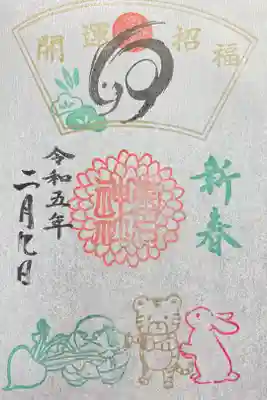 開運招福
新春
令和五年
二月九日